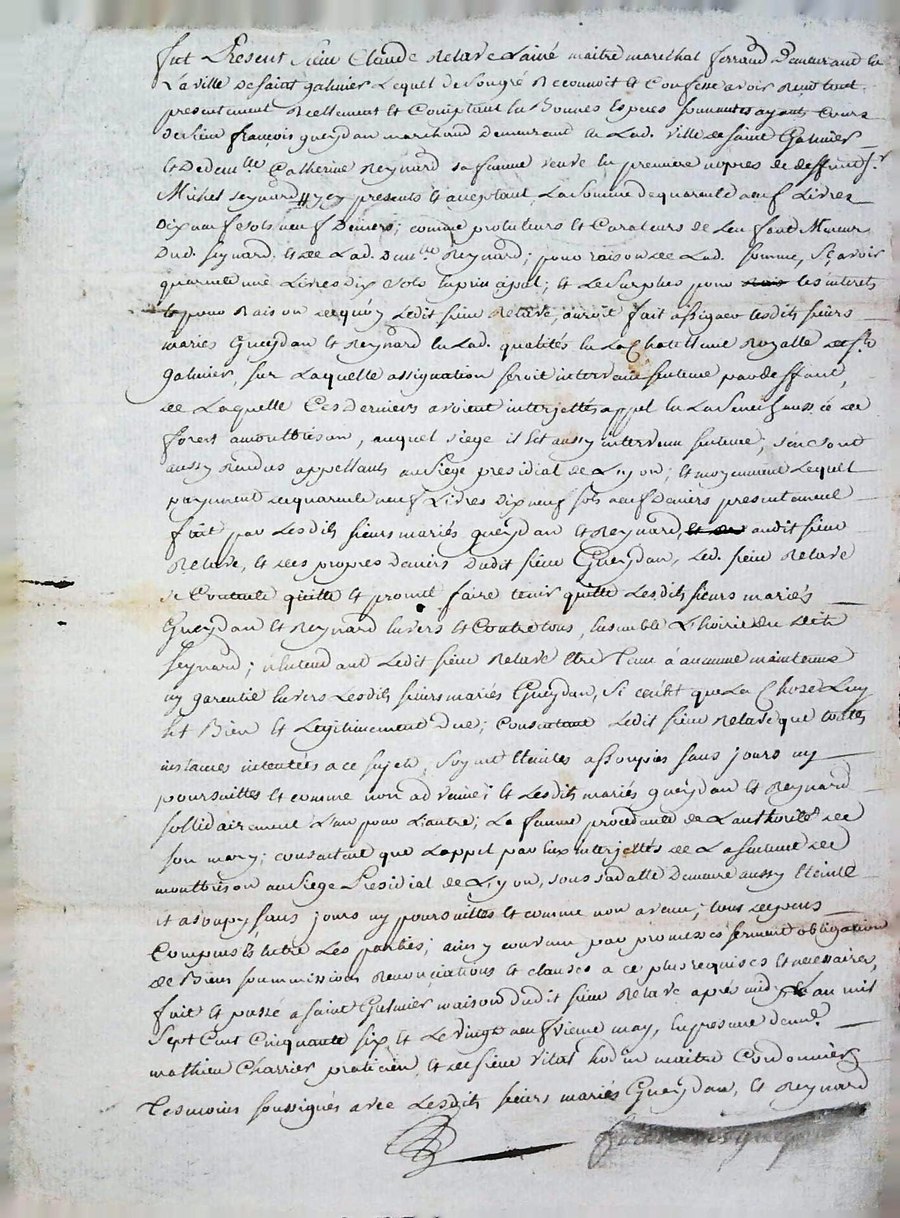 fut Present sieur Claude Relave Lainé maitre marechal ferrand Demeurant en
La ville De saint galmier Lequel De son gré Reconnoit et Confesse avoir Reçu tout
presentement Reellement et Comptant en Bonnes Especes sonnantes ayants Cours
De sieur françois gueydan marchand demeurant en Lad. ville de saint Galmier
et De dem.lle Catherine Reynard sa femme veuve en premiere nopces de deffunt s.r
Michel seynard # icy presents et acceptant La somme de quarente neuf Livres
Dix neuf sols neuf Deniers; comme protuteurs et Curateurs de Lenfant Mineur
Dud. seynard et de Lad. Dem.lle Reynard; pour raison de Lad. somme, Sçavoir
quarente une Livres dix sols en principal; et Le surplus pour les interets
et pour Raison de quoy Ledit sieur Relave, auroit fait assigner lesdits sieurs
mariés Gueydan et Reynard en Lad. qualités en La Chatellenie Royalle de s.t
Galmier, sur Laquelle assignation seroit intervenue sentence par deffaut,
de Laquelle Ces derniers avoient interjettés appel en La Seneschaussée de
forest a montbrison, auquel siege il est aussy intervenu sentence, dont ils sont
aussy Rendus appellants au siege presidial de Lyon; et moyennant Lequel
payement de quarente neuf Livres Dix neuf sols neuf Deniers presentement
fait par Lesdits sieurs mariés gueydan et Reynard, audit sieur
Relave, et des propres deniers dudit sieur Gueydan, Led. sieur Relave
se Contente quitte et promet faire tenir quitte Lesdits sieurs mariés
Gueydan et Reynard envers et Contre tous, ensemble L'hoirie du dit
seynard; n'entendant Ledit sieur Relave etre Tenu à aucune maintenue
ny garentie envers Lesdits sieurs mariés Gueydan, Si ce n'est que La Chose Luy
est Bien et Legitimement due; Consentant Ledit sieur Relave que toutes
instances intentées a ce sujet, Soyent Eteintes assoupies sans jours ny
poursuittes et comme non advenue; et Lesdits mariés gueydan et Reynard
sollidairement L'un pour L'autre; La femme procedante de L'authorité de
son mary; consentent que L'appel par Eux interjettés de La sentence de
montbrison au siege Presidial de Lyon, Demeure aussy Eteinte
et asoupy, sans jours ny poursuittes et comme non avenue; tous depens
Compensés entre Les parties; ainsy convenu par promesses serment obligation
de Biens soummissions Renonciations et clauses a ce plus requises et necessaires,
fait et passé a saint Galmier maison dudit sieur Relave après midy L'an mil
Sept Cent Cinquante six et Le vingt neufvieme may, En presence de m.e
mathieu Charrier praticien, et de sieur vital maitre Cordonnier
Tesmoins soussignés avec Lesdits sieurs mariés Gueydan, et Reynard